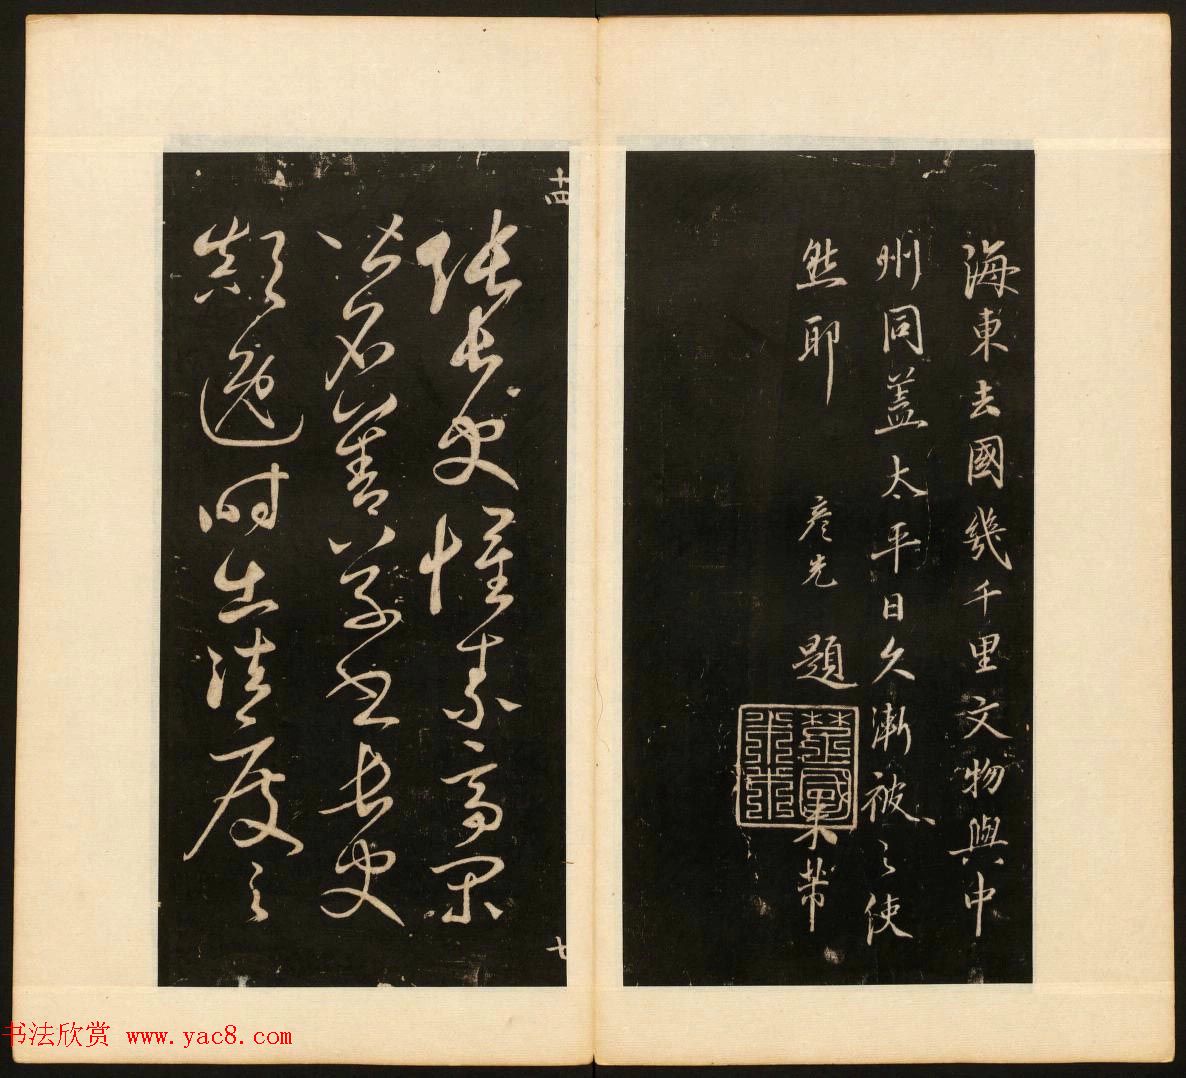 海東去國幾千里文物與中
州同蓋太平日久漸被之使
然耶 彥先 題 米芾
楚國米芾
十四
張長史懷素高閑
皆名善草書長史
顛逸時出法度之
七
书法欣赏 www.yac8.com